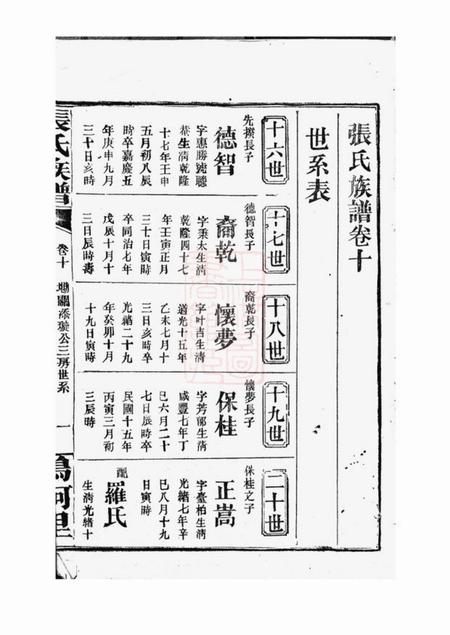 張氏族譜卷十
世系表
十六世
先撰長子
德智
字惠勝號聰
菴生清乾隆
十七年壬申
五月初八辰
時卒嘉慶五
年庚申九月
三十日亥時
十七世
德智長子
裔乾
字秉太生清
乾隆四十七
年壬寅正月
三十日寅時
卒同治七年
戊辰十月十
三日辰時壽
十八世
裔乾長子
懷夢
字叶吉生清
道光十五年
乙未七月十
三日亥時卒
光緒二十九
年癸卯十月
十九日寅時
十九世
懷夢長子
保桂
字芳郁生清
咸豐七年丁
巳六月二十
七日辰時卒
民國十五年
丙寅三月初
三辰時
二十世
保桂之子
正嵩
字臺柏生清
光緒七年辛
巳八月十九
日寅時
配
羅氏
生清光緒十
張氏族譜
卷十
公三房世系
一